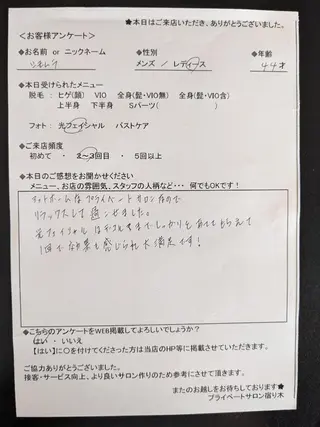 ★本日はご来店いただき、ありがとうございました。
＜お客様アンケート＞
◆お名前 or ニックネーム ◆性別 ◆年齢
メンズ ／ レディース 44才
◆本日受けられたメニュー
脱毛 ： ヒゲ(顔) VIO 全身(髭・VIO無) 全身(髭・VIO含)
上半身 下半身 Sパーツ( )
フォト： 光フェイシャル バストケア
◆ご来店頻度
初めて ・ 2～3回目 ・ 5回以上
◆本日のご感想をお聞かせください
メニュー、お店の雰囲気、スタッフの人柄など・・・ 何でもOKです！
アットホームなプライベートサロンなので
リラックスして過ごせました。
光フェイシャルは しっかりとあててもらえて
1回でも効果を感じられ大満足です！
◆こちらのアンケートをWEB掲載してよろしいでしょうか？
はい ・ いいえ
【はい】に○を付けてくださった方は当店のHP等に掲載させていただきます。
ご協力ありがとうございました。
接客・サービス向上、より良いサロン作りのため参考にさせて頂きます。
またのお越しをお待ちしております★
プライベートサロン宿り木